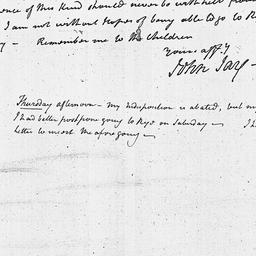 ence of this kind should never be with held from
I am not without Hopes of being able to go to R
y — Remember me to the Children
Your aff.ty
John Jay —
Thursday afternoon — my Indisposition is abated, but
I had better postpone going to Rye on Saturday — I h
Letter to insert the aforegoing —